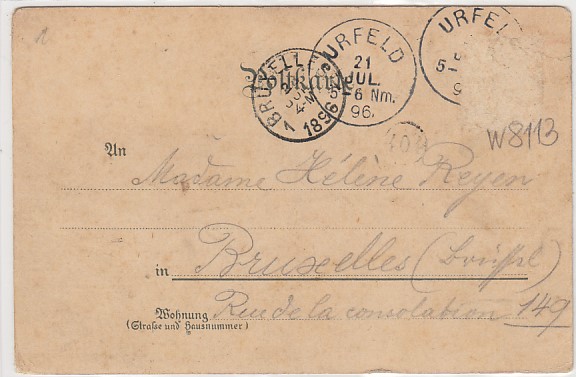 1
URFE
5-
9
URFELD
21
JUL.
5-6 Nm.
96.
BRUXELLES
4-M
1896
Postkarte
W8113
An
Madame Hélène Reyen
in Bruxelles (Brüssel)
Wohnung Rue de la consolation 149
(Straße und Hausnummer)